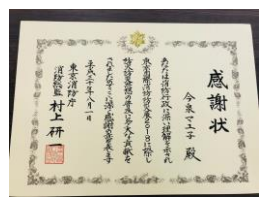 感謝状
今泉マユ子 殿
あなたは消防行政に深い理解を示され
東京国際消防防災展2018に際し
防火防災思想の普及に多大な貢献を
されましたここに深く感謝の意を表します
平成三十年八月一日
東京消防庁
消防総監 村上研一